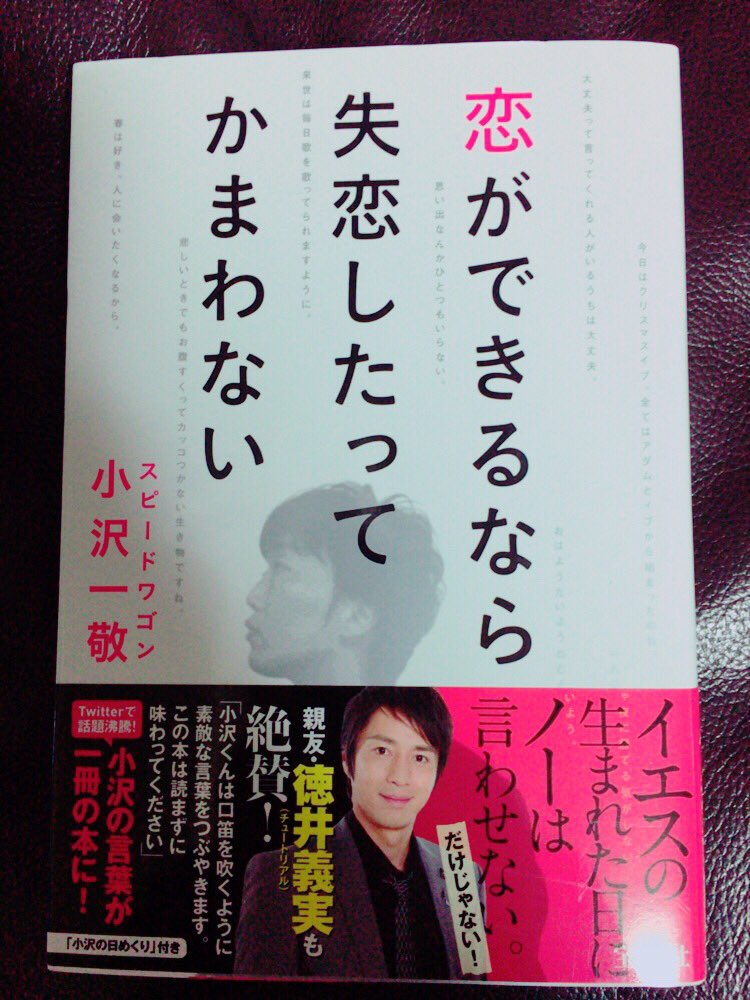 恋ができるなら
失恋したって
かまわない
スピードワゴン
小沢一敬
大丈夫って言ってくれる人がいるうちは大丈夫。
思い出なんかひとつもいらない。
来世は毎日歌を歌ってられますように。
悲しいときでもお腹すくってカッコつかない生き物ですね。
春は好き。人に会いたくなるから。
イエスの
生まれた日に
ノーは
言わせない。
だけじゃない!
親友・徳井義実も
(チュートリアル)
絶賛!
「小沢くんは口笛を吹くように
素敵な言葉をつぶやきます。
この本は読まずに
味わってください」
Twitterで
話題沸騰!
小沢の言葉が
一冊の本に!
「小沢の日めくり」付き